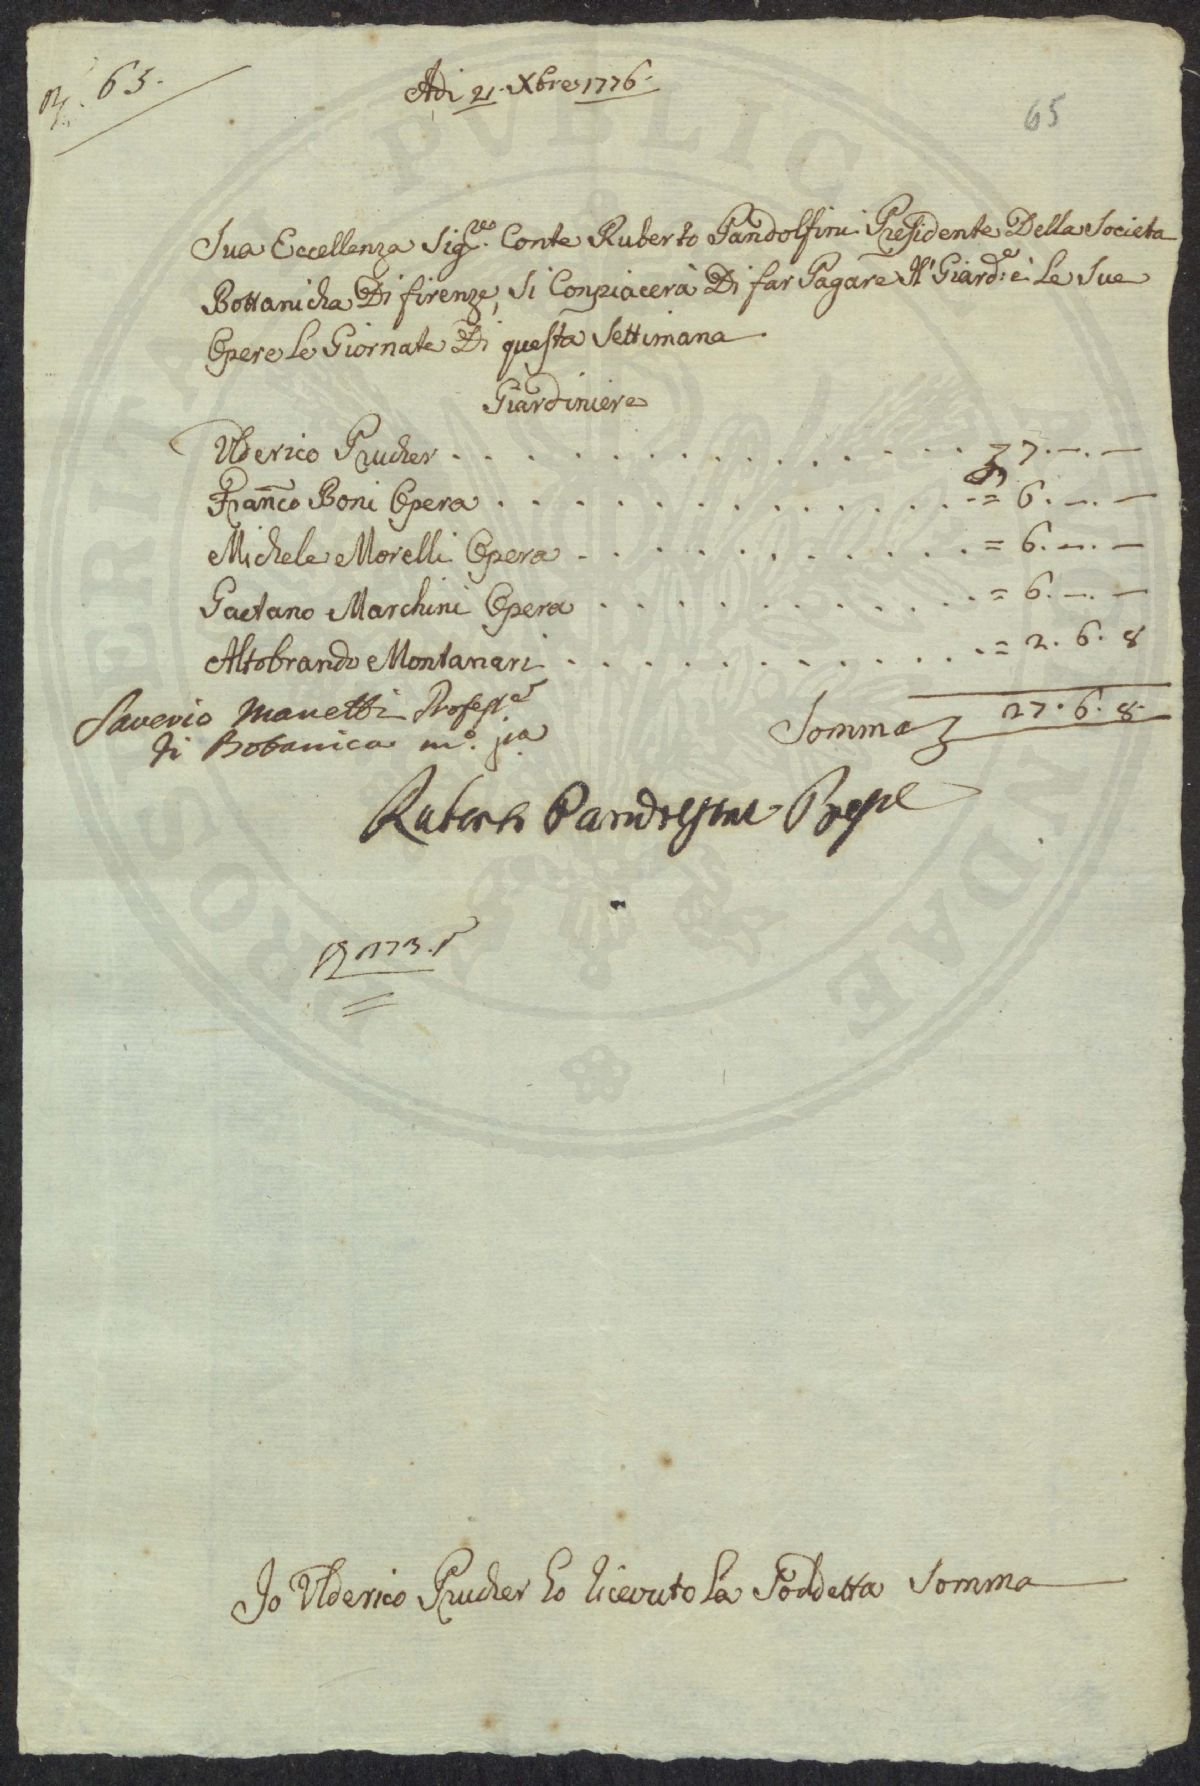 N. 65.
Adì 21. Xbre 1776.
65
Sua Eccellenza Sig.re Conte Ruberto Pandolfini Presidente Della Societa
Bottanicha Di firenze, Si Conpiacerà Di far Pagare Il Giard:e è Le Sue
Opere Le Giornate Di questa Settimana
Giardiniere
Ulderico Prucher . . . . . . . . . . . . . . . . 7. —. —
Franco Boni Opera . . . . . . . . . . . . . . = 6. —. —
Michele Morelli Opera . . . . . . . . . . . = 6. —. —
Gaetano Marchini Opera . . . . . . . . . . = 6. —. —
Altobrando Montanari . . . . . . . . . . . = 2. 6. 8
Saverio Manetti Profess.r
di Botanica m.o p.a
Somma 27. 6. 8
Ruberto Pandolfini Pres.e
Io Ulderico Prucher ho ricevuto la Soddetta Somma